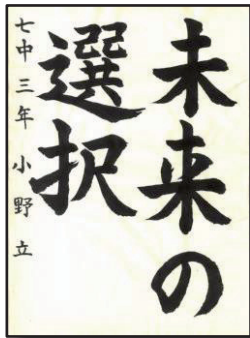 未来の
選択
七中 三年 小野 立